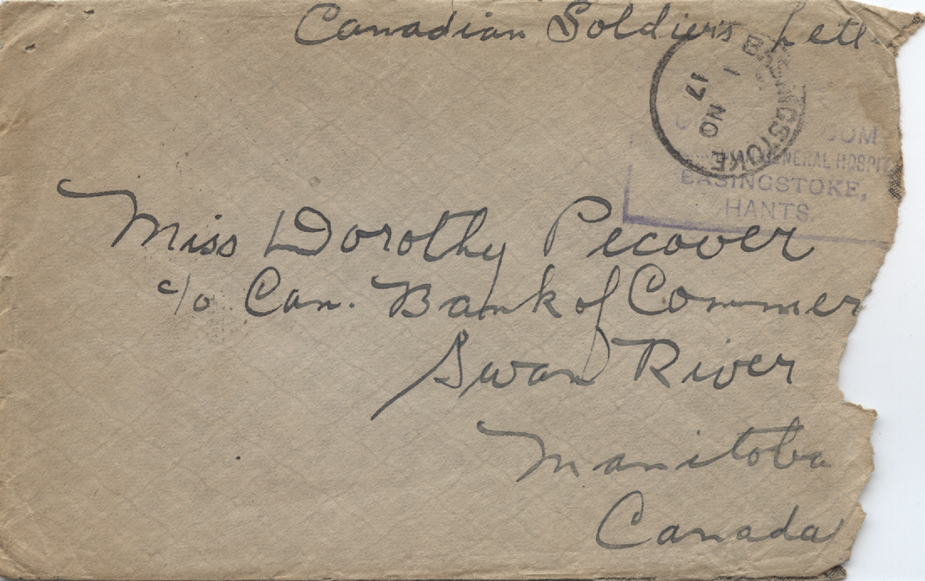 Canadian Soldiers Lett
BASINGSTOKE
1
NO
17
COM
GENERAL HOSPI
BASINGSTOKE,
HANTS.
Miss Dorothy Pecover
c/o Can. Bank of Commer
Swan River
Manitoba
Canada